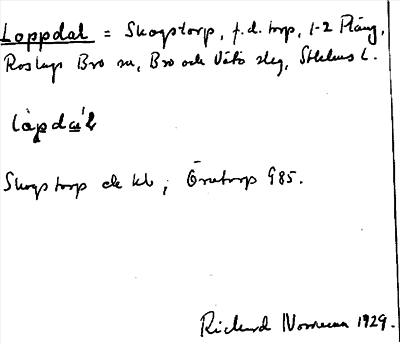 Loppdal = Skogstorp, f.d. torp, 1-2 Pläng,
Roslags Bro sn, Bro och Vätö slg, Sthlms l.
làpdaʹl
Skogstorp ek kb; Örntorp 985.
Rickard Norman 1929.